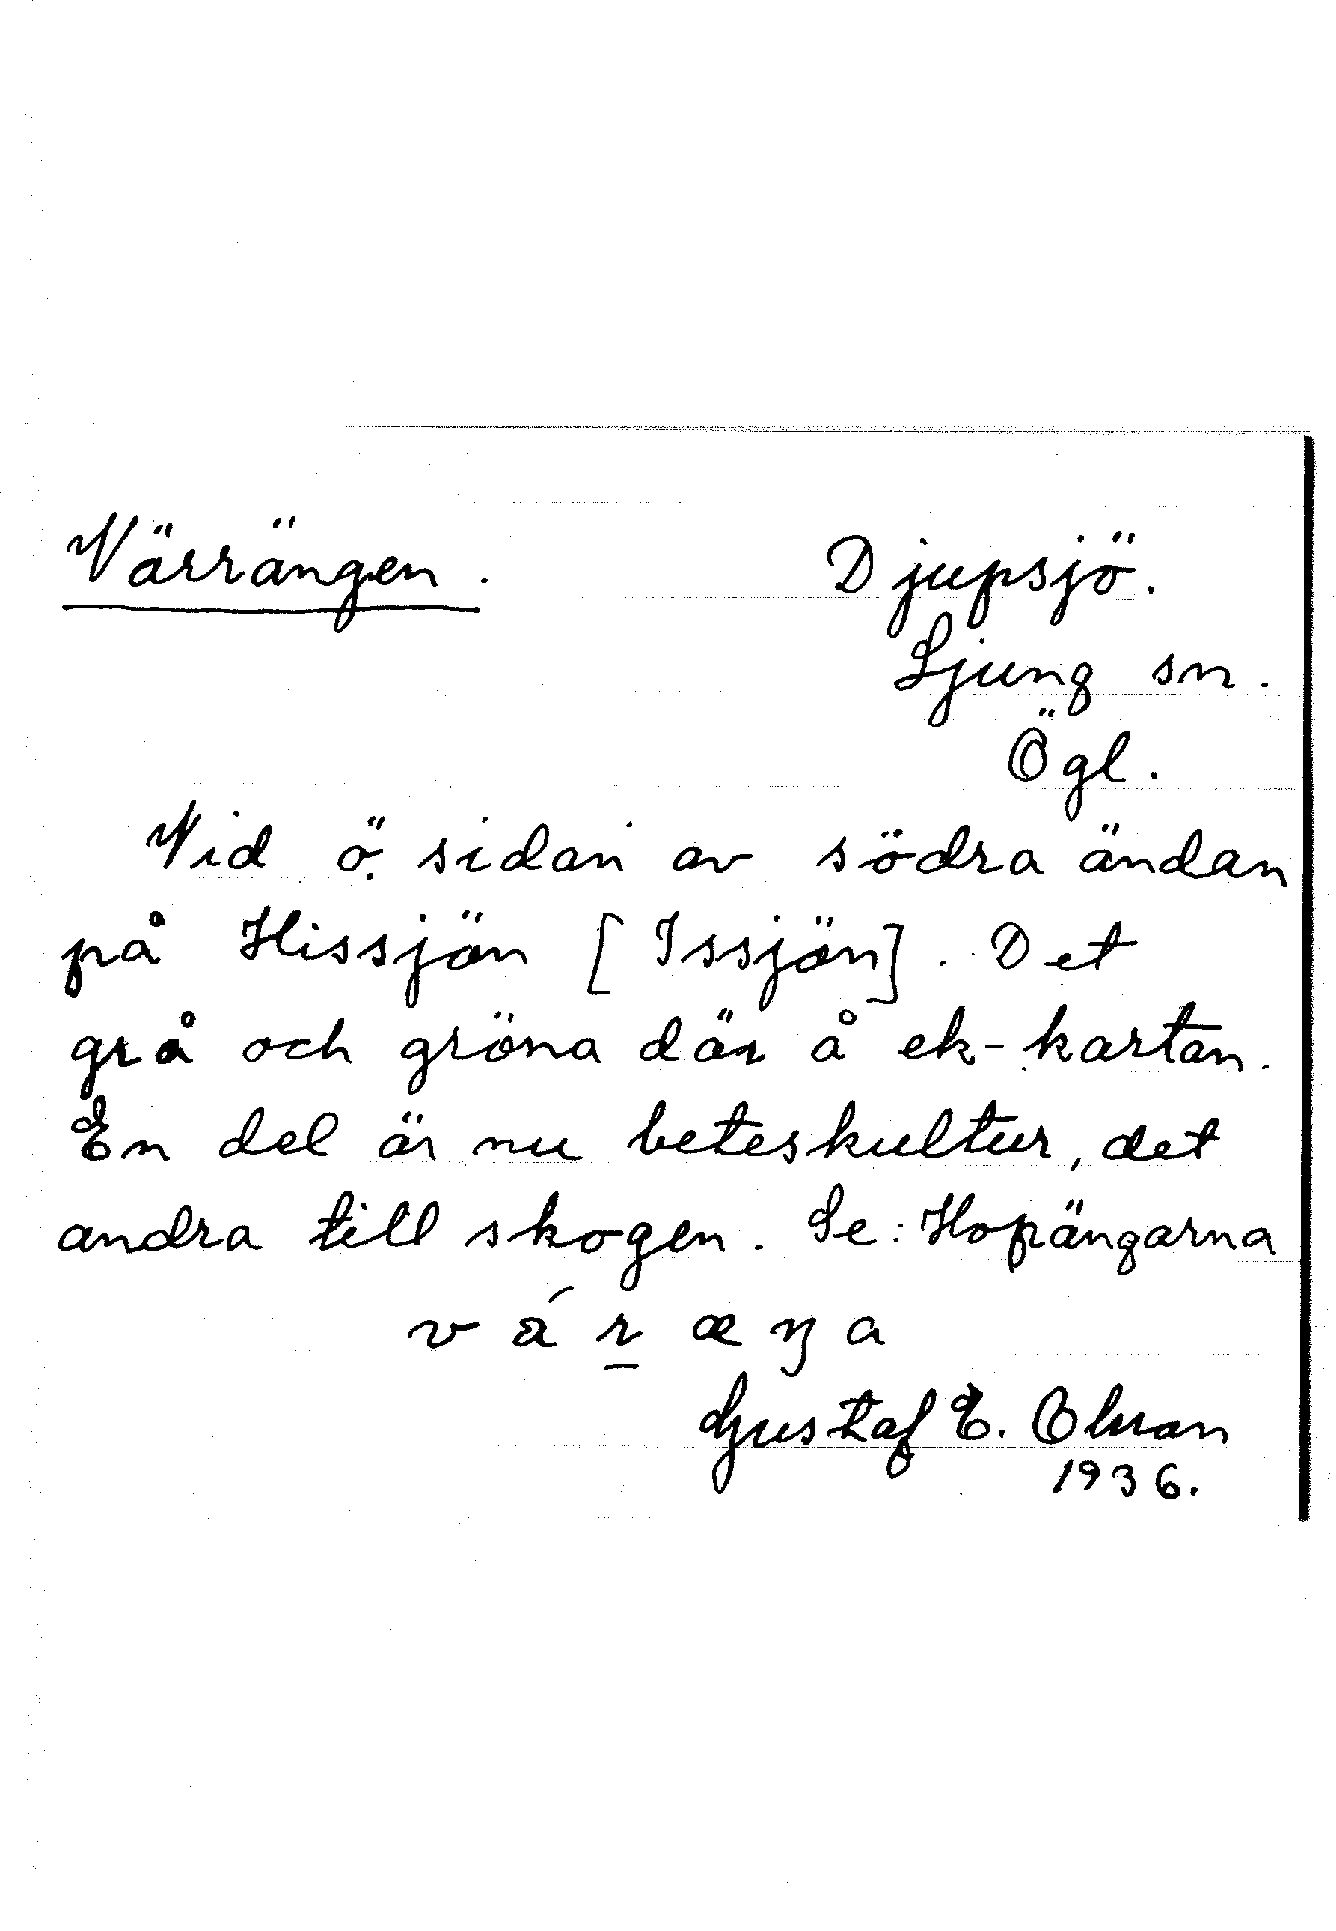 Värrängen.
Djupsjö.
Ljung sn.
Ögl.
Vid ö. sidan av södra ändan
på Hissjön [Issjön]. Det
grå och gröna där å ek-kartan.
En del är nu beteskultur, det
andra till skogen. Se: Hopängarna
vár̠æŋa
Gustaf E.
1936.